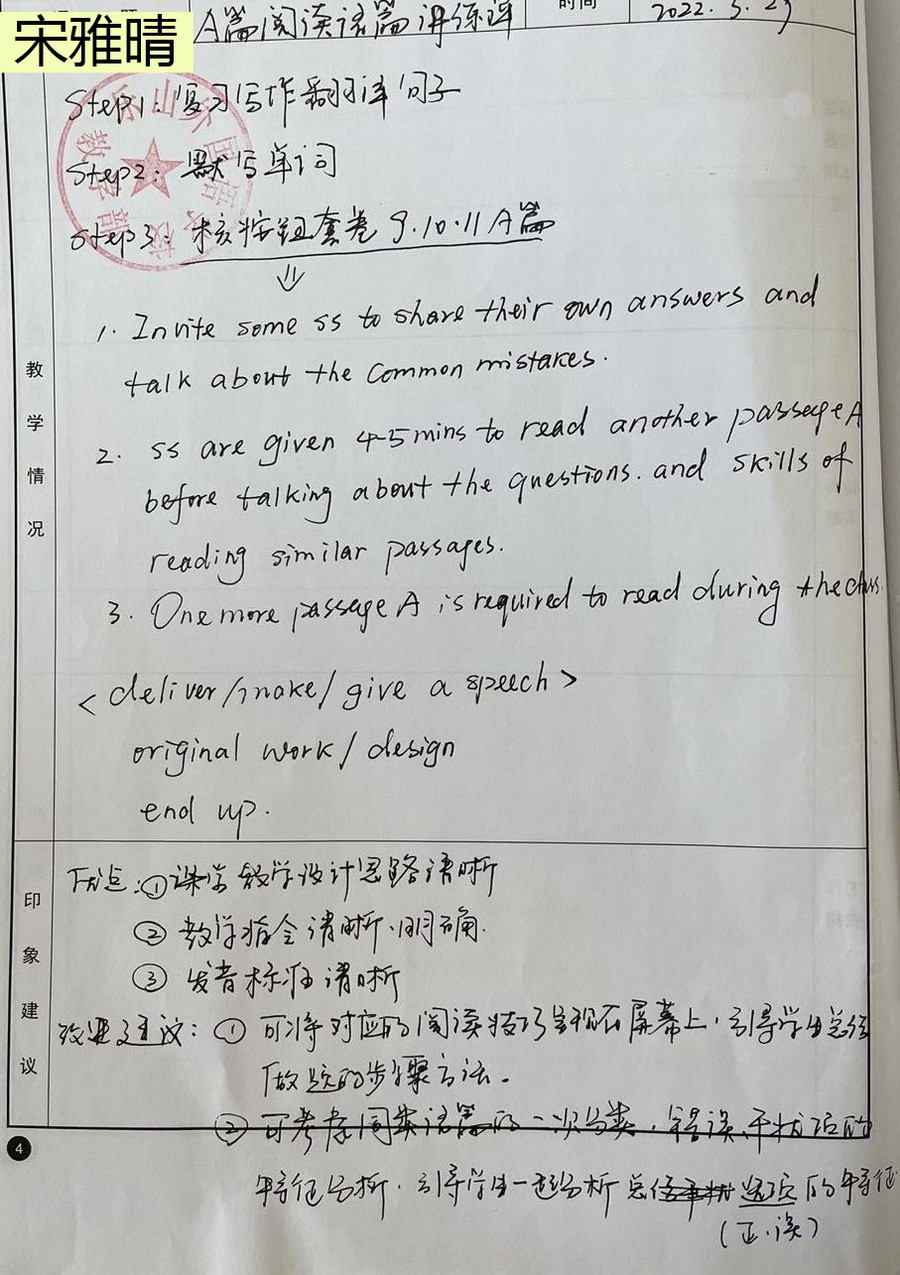 宋雅晴
课 题 A篇阅读语篇讲练评 时间 2022.5.29
Step1: 复习写作翻译句子
Step2: 默写单词
Step3: 核按钮套卷 9.10.11 A篇
⇓
1. Invite some ss to share their own answers and
talk about the common mistakes.
2. ss are given 4-5 mins to read another passage A
before talking about the questions. and skills of
reading similar passages.
3. One more passage A is required to read during the class.
<deliver/make/give a speech>
original work/design
end up.
教学情况
优点: ①教学设计思路清晰
② 教学指令清晰、明确.
③ 发音标准清晰
改进建议: ① 可将对应的阅读技巧呈现在屏幕上, 引导学生总结
做题的步骤方法。
② 可考虑同类语篇的一次归类, 错误、干扰项的
特征分析, 引导学生一起分析总结选项的特征
(正、误)
印象建议
4